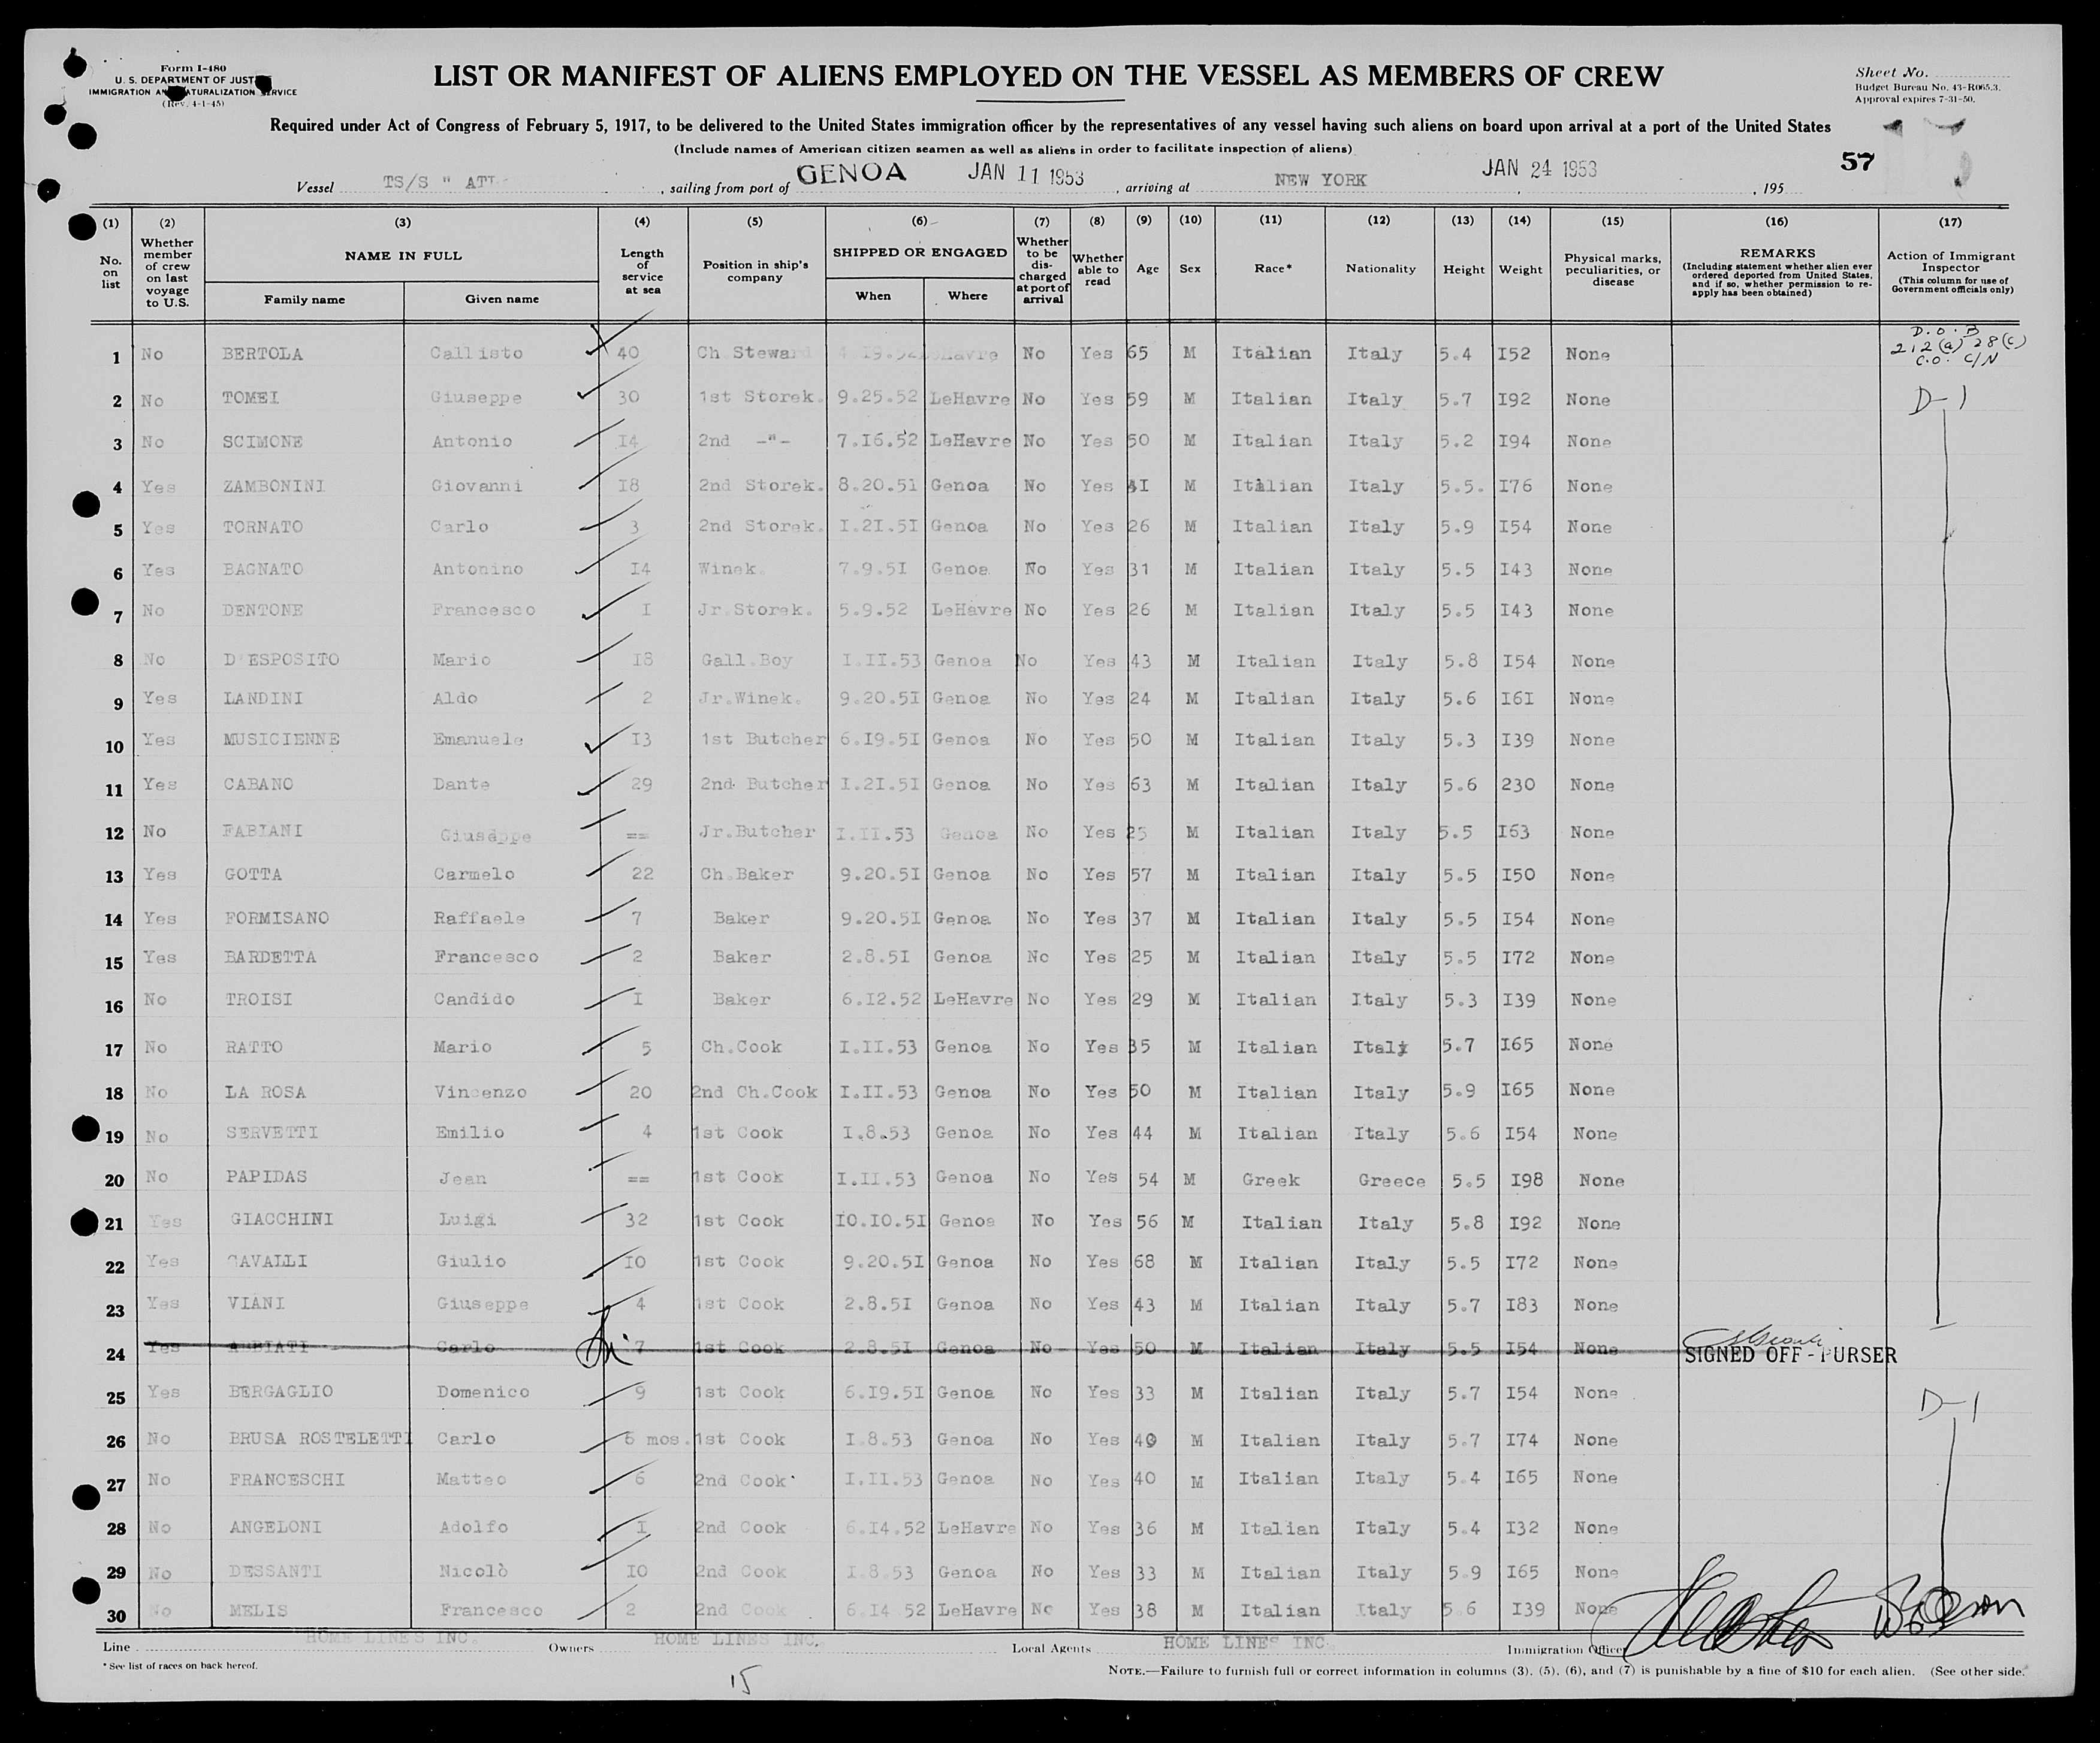 Form I-480
U. S. DEPARTMENT OF JUSTICE
IMMIGRATION AND NATURALIZATION SERVICE
(Rev. 4-1-45)
LIST OR MANIFEST OF ALIENS EMPLOYED ON THE VESSEL AS MEMBERS OF CREW
Sheet No.
Budget Bureau No. 43-R065.3.
Approval expires 7-31-50.
Required under Act of Congress of February 5, 1917, to be delivered to the United States immigration officer by the representatives of any vessel having such aliens on board upon arrival at a port of the United States
(Include names of American citizen seamen as well as aliens in order to facilitate inspection of aliens)
57
Vessel TS/S " ATL , sailing from port of GENOA JAN 11 1953 , arriving at NEW YORK JAN 24 1953 , 195
(1) (2) (3) (4) (5) (6) (7) (8) (9) (10) (11) (12) (13) (14) (15) (16) (17)
No. on list
Whether member of crew on last voyage to U.S.
NAME IN FULL
Family name Given name
Length of service at sea
Position in ship's company
SHIPPED OR ENGAGED
When Where
Whether to be discharged at port of arrival
Whether able to read
Age
Sex
Race*
Nationality
Height
Weight
Physical marks, peculiarities, or disease
REMARKS
(Including statement whether alien ever ordered deported from United States, and if so, whether permission to re-apply has been obtained)
Action of Immigrant Inspector
(This column for use of Government officials only)
D.O.B
212(a) 28(c)
C.O. C/N
1 No BERTOLA Callisto 40 Ch Steward 4 19.52 LeHavre No Yes 65 M Italian Italy 5.4 I52 None
2 No TOMEI Giuseppe 30 1st Storek. 9.25.52 LeHavre No Yes 59 M Italian Italy 5.7 I92 None D-1
3 No SCIMONE Antonio I4 2nd -"- 7.I6.52 LeHavre No Yes 50 M Italian Italy 5.2 I94 None
4 Yes ZAMBONINI Giovanni I8 2nd Storek. 8.20.51 Genoa No Yes 4I M Italian Italy 5.5. I76 None
5 Yes TORNATO Carlo 3 2nd Storek. I.2I.5I Genoa No Yes 26 M Italian Italy 5.9 I54 None
6 Yes BAGNATO Antonino I4 Winek. 7.9.5I Genoa No Yes 31 M Italian Italy 5.5 I43 None
7 No DENTONE Francesco I Jr.Storek. 5.9.52 LeHavre No Yes 26 M Italian Italy 5.5 I43 None
8 No D'ESPOSITO Mario I8 Gall.Boy I.II.53 Genoa No Yes 43 M Italian Italy 5.8 I54 None
9 Yes LANDINI Aldo 2 Jr.Winek. 9.20.5I Genoa No Yes 24 M Italian Italy 5.6 I6I None
10 Yes MUSICIENNE Emanuele I3 1st Butcher 6.I9.5I Genoa No Yes 50 M Italian Italy 5.3 I39 None
11 Yes CABANO Dante 29 2nd Butcher I.2I.5I Genoa No Yes 63 M Italian Italy 5.6 230 None
12 No FABIANI Giuseppe == Jr.Butcher I.II.53 Genoa No Yes 25 M Italian Italy 5.5 I63 None
13 Yes GOTTA Carmelo 22 Ch.Baker 9.20.5I Genoa No Yes 57 M Italian Italy 5.5 I50 None
14 Yes FORMISANO Raffaele 7 Baker 9.20.5I Genoa No Yes 37 M Italian Italy 5.5 I54 None
15 Yes BARDETTA Francesco 2 Baker 2.8.5I Genoa No Yes 25 M Italian Italy 5.5 I72 None
16 No TROISI Candido I Baker 6.I2.52 LeHavre No Yes 29 M Italian Italy 5.3 I39 None
17 No RATTO Mario 5 Ch.Cook I.II.53 Genoa No Yes 35 M Italian Italy 5.7 I65 None
18 No LA ROSA Vincenzo 20 2nd Ch.Cook I.II.53 Genoa No Yes 50 M Italian Italy 5.9 I65 None
19 No SERVETTI Emilio 4 1st Cook I.8.53 Genoa No Yes 44 M Italian Italy 5.6 I54 None
20 No PAPIDAS Jean == 1st Cook I.II.53 Genoa No Yes 54 M Greek Greece 5.5 I98 None
21 Yes GIACCHINI Luigi 32 1st Cook IO.IO.5I Genoa No Yes 56 M Italian Italy 5.8 I92 None
22 Yes CAVALLI Giulio IO 1st Cook 9.20.5I Genoa No Yes 68 M Italian Italy 5.5 I72 None
23 Yes VIANI Giuseppe 4 1st Cook 2.8.5I Genoa No Yes 43 M Italian Italy 5.7 I83 None
24 Yes Carlo 7 1st Cook 2.8.5I Genoa No Yes 50 M Italian Italy 5.5 I54 None SIGNED OFF - PURSER
25 Yes BERGAGLIO Domenico 9 1st Cook 6.I9.5I Genoa No Yes 33 M Italian Italy 5.7 I54 None D-1
26 No BRUSA ROSTELETTI Carlo 6 mos. 1st Cook I.8.53 Genoa No Yes 40 M Italian Italy 5.7 I74 None
27 No FRANCESCHI Matteo 6 2nd Cook I.II.53 Genoa No Yes 40 M Italian Italy 5.4 I65 None
28 No ANGELONI Adolfo I 2nd Cook 6.I4.52 LeHavre No Yes 36 M Italian Italy 5.4 I32 None
29 No DESSANTI Nicolò IO 2nd Cook I.8.53 Genoa No Yes 33 M Italian Italy 5.9 I65 None
30 No MELIS Francesco 2 2nd Cook 6.I4 52 LeHavre No Yes 38 M Italian Italy 5.6 I39 None
Line HOME LINES INC. Owners HOME LINES INC. Local Agents HOME LINES INC. Immigration Officer
* See list of races on back hereof.
NOTE.—Failure to furnish full or correct information in columns (3), (5), (6), and (7) is punishable by a fine of $10 for each alien. (See other side.
15